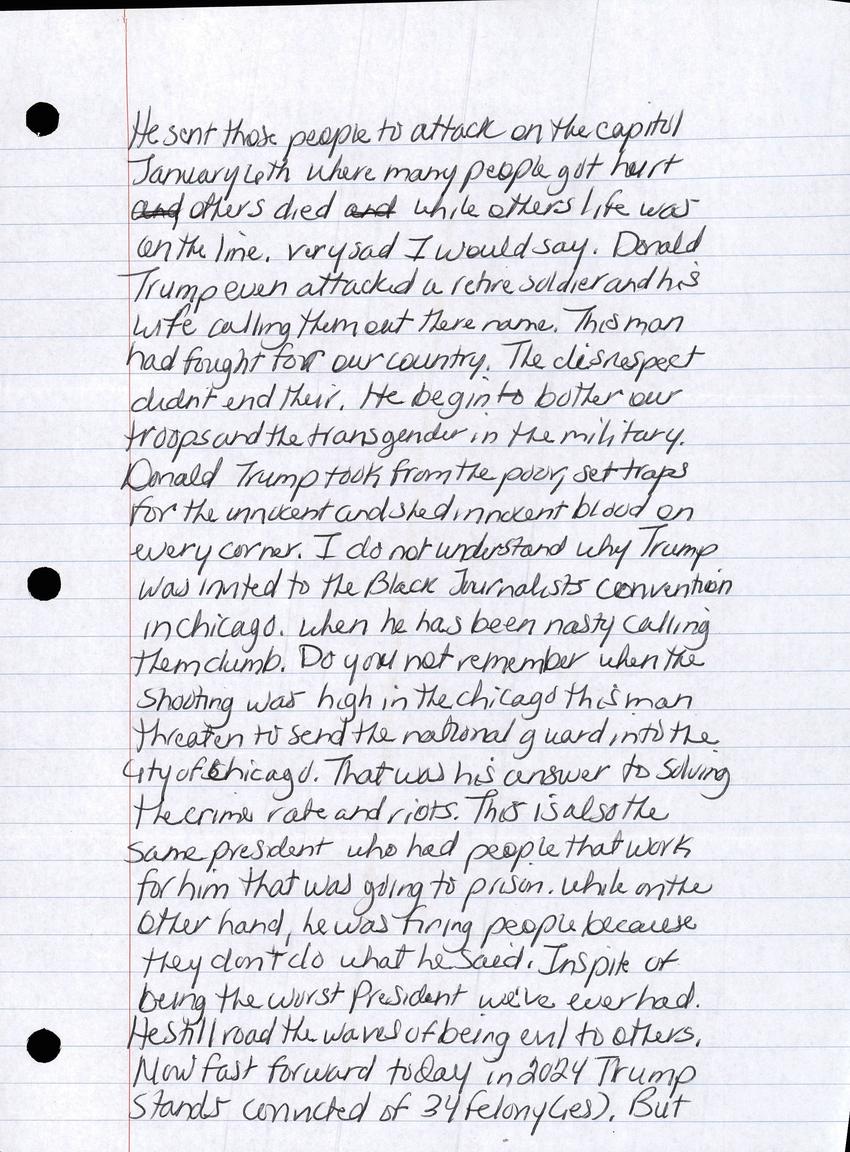 He sent those people to attack on the capitol
January 6th where many people got hurt
and others died and while others life was
on the line. very sad I would say. Donald
Trump even attacked a retire soldier and his
wife calling them out there name. This man
had fought for our country. The disrespect
didn't end their. He begin to bother our
troops and the transgender in the military.
Donald Trump took from the poor, set traps
for the innocent and shed innocent blood on
every corner. I do not understand why Trump
was invited to the Black Journalists convention
in chicago. when he has been nasty calling
them dumb. Do you not remember when the
shooting was high in the chicago this man
threaten to send the national guard into the
City of Chicago. That was his answer to solving
the crime rate and riots. This is also the
same president who had people that work
for him that was going to prison. while on the
other hand, he was firing people because
they don't do what he said. Inspite of
being the worst President we've ever had.
He still road the waves of being evil to others.
Now fast forward today in 2024 Trump
Stands convicted of 34 felony(ies). But